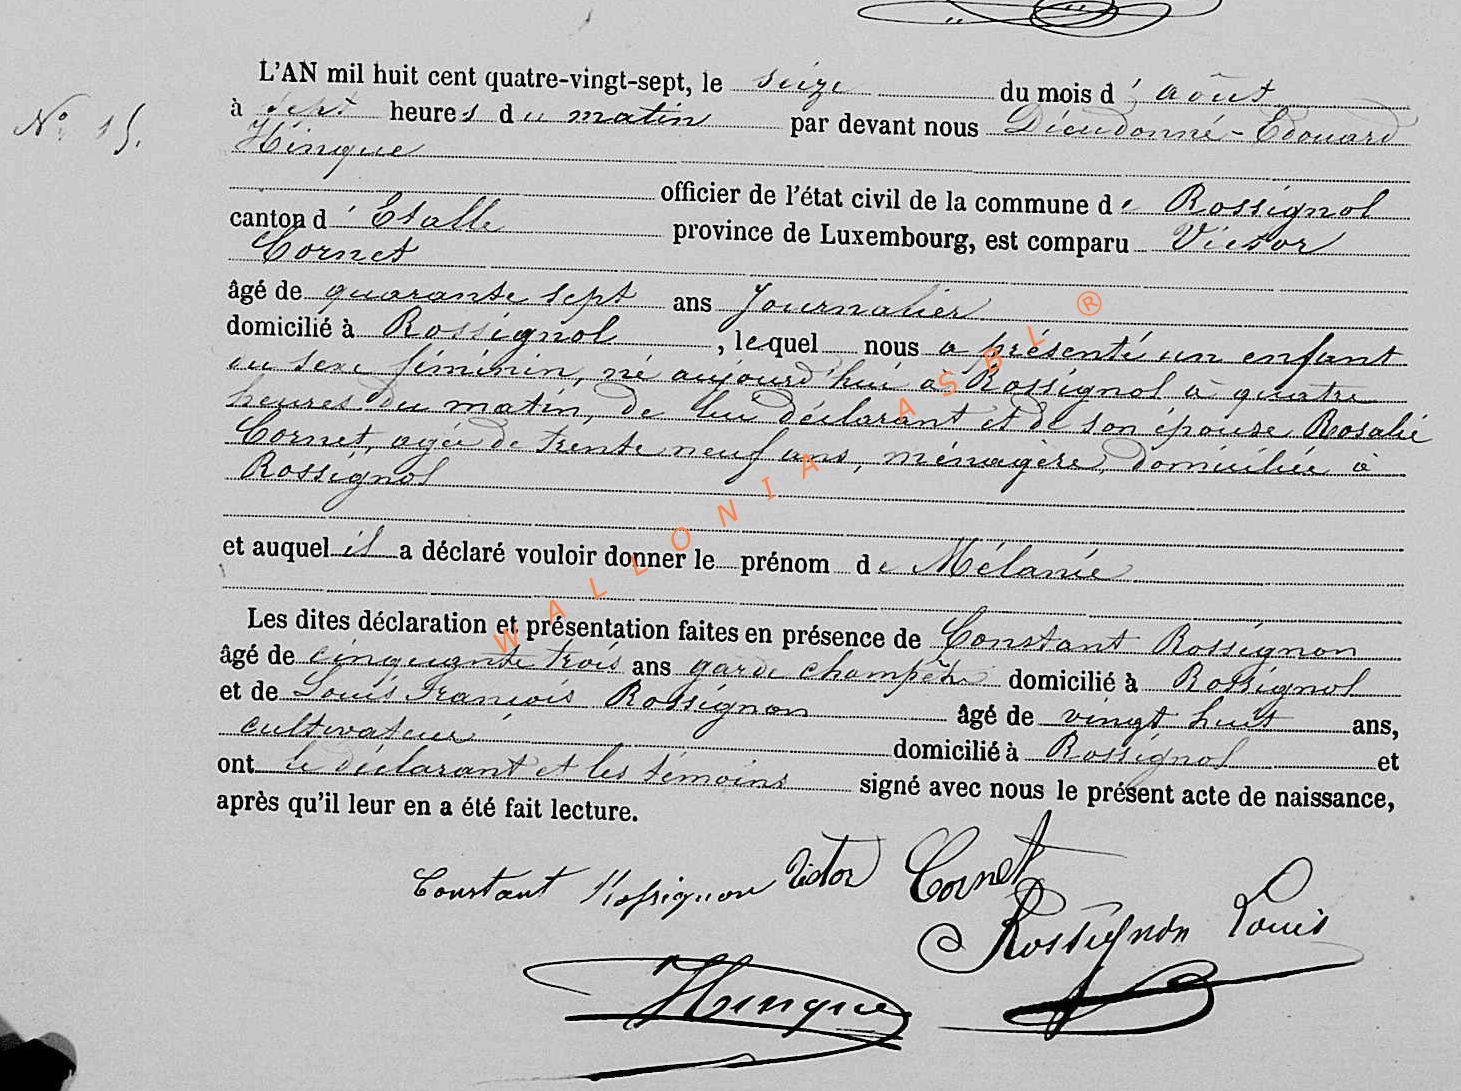 L'AN mil huit cent quatre-vingt-sept, le seize du mois d'août
N° 15.
à sept heures du matin par devant nous Dieudonné-Edouard
Hinque
officier de l'état civil de la commune de Rossignol
canton d'Etalle province de Luxembourg, est comparu Victor
Cornet
âgé de quarante sept ans Journalier
domicilié à Rossignol, lequel nous a présenté un enfant
du sexe féminin, né aujourd'hui à Rossignol à quatre
heures du matin, de lui déclarant et de son épouse Rosalie
Cornet, agée de trente neuf ans, ménagère, domiciliée à
Rossignol
et auquel il a déclaré vouloir donner le prénom de Mélanie
Les dites déclaration et présentation faites en présence de Constant Rossignon
âgé de cinquante trois ans garde champêtre domicilié à Rossignol
et de Louis François Rossignon âgé de vingt huit ans,
cultivateur domicilié à Rossignol et
ont le déclarant et les témoins signé avec nous le présent acte de naissance,
après qu'il leur en a été fait lecture.
Constant Rossignon Victor Cornet
Rossignon Louis
Hinque
WALLONIA ASBL ®